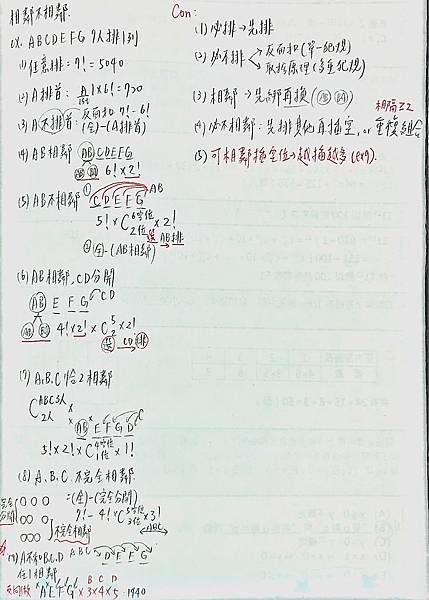 相鄰不相鄰.
ex. A B C D E F G 7人排1列
(1) 任意排 = 7! = 5040
(2) A排首 : A 1×6! = 720
(3) A不排首 : 反面扣 7! - 6!
(全)-(A排首)
(4) AB相鄰 (AB) C D E F G
(AB) (BA) 6! × 2!
(5) AB不相鄰 ① C D E F G AB
5! × C 6空位 2位 × 2!
選 AB排
② (全)-(AB相鄰)
(6) AB相鄰, CD分開
(AB) E F G CD
(AB) (BA) 4! × 2! × C 5 2 × 2!
選 CD排
(7) A.B.C恰2相鄰
C ABC3人 2人
(AB) E F G D C
5! × 2! × C 4空位 1位 × 1!
(8) A、B、C 不完全相鄰
=(全)-(完全分開)
7! - 4! × C 5空位 3位 × 3!
ABC
完全分開 ○ ○ ○
○○ ○
○○○
不完全相鄰
(9) A不和B.C.D任1相鄰
A B C D E F G
反面做 A E F G × 3 × 4 × 5 = 1940
B C D
Con:
(1) 必排→先排
(2) 必不排 反面扣(單一犯規)
取捨原理(多重犯規)
(3) 相鄰 → 先綁再換
(4) 必不相鄰 : 先排其他再插空, or 重複組合
相隔≥2
(5) 可相鄰插空位→越插越多 (ex9).